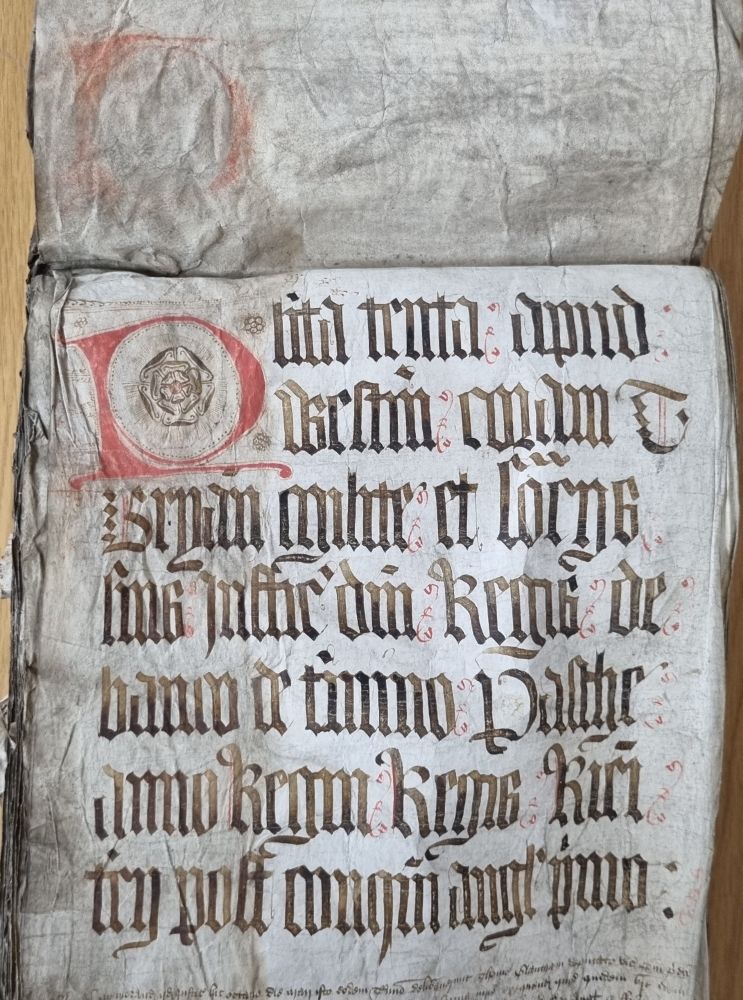 Plita tenta apud
Westm̄ coram T
Bryan milite et Soc̄ijs
suis Justic̄ dn̄i Regis de
banco de t̄mino Pasche
anno Regni Regis Rici
t̄cij post conqm̄ angl' p̄mo